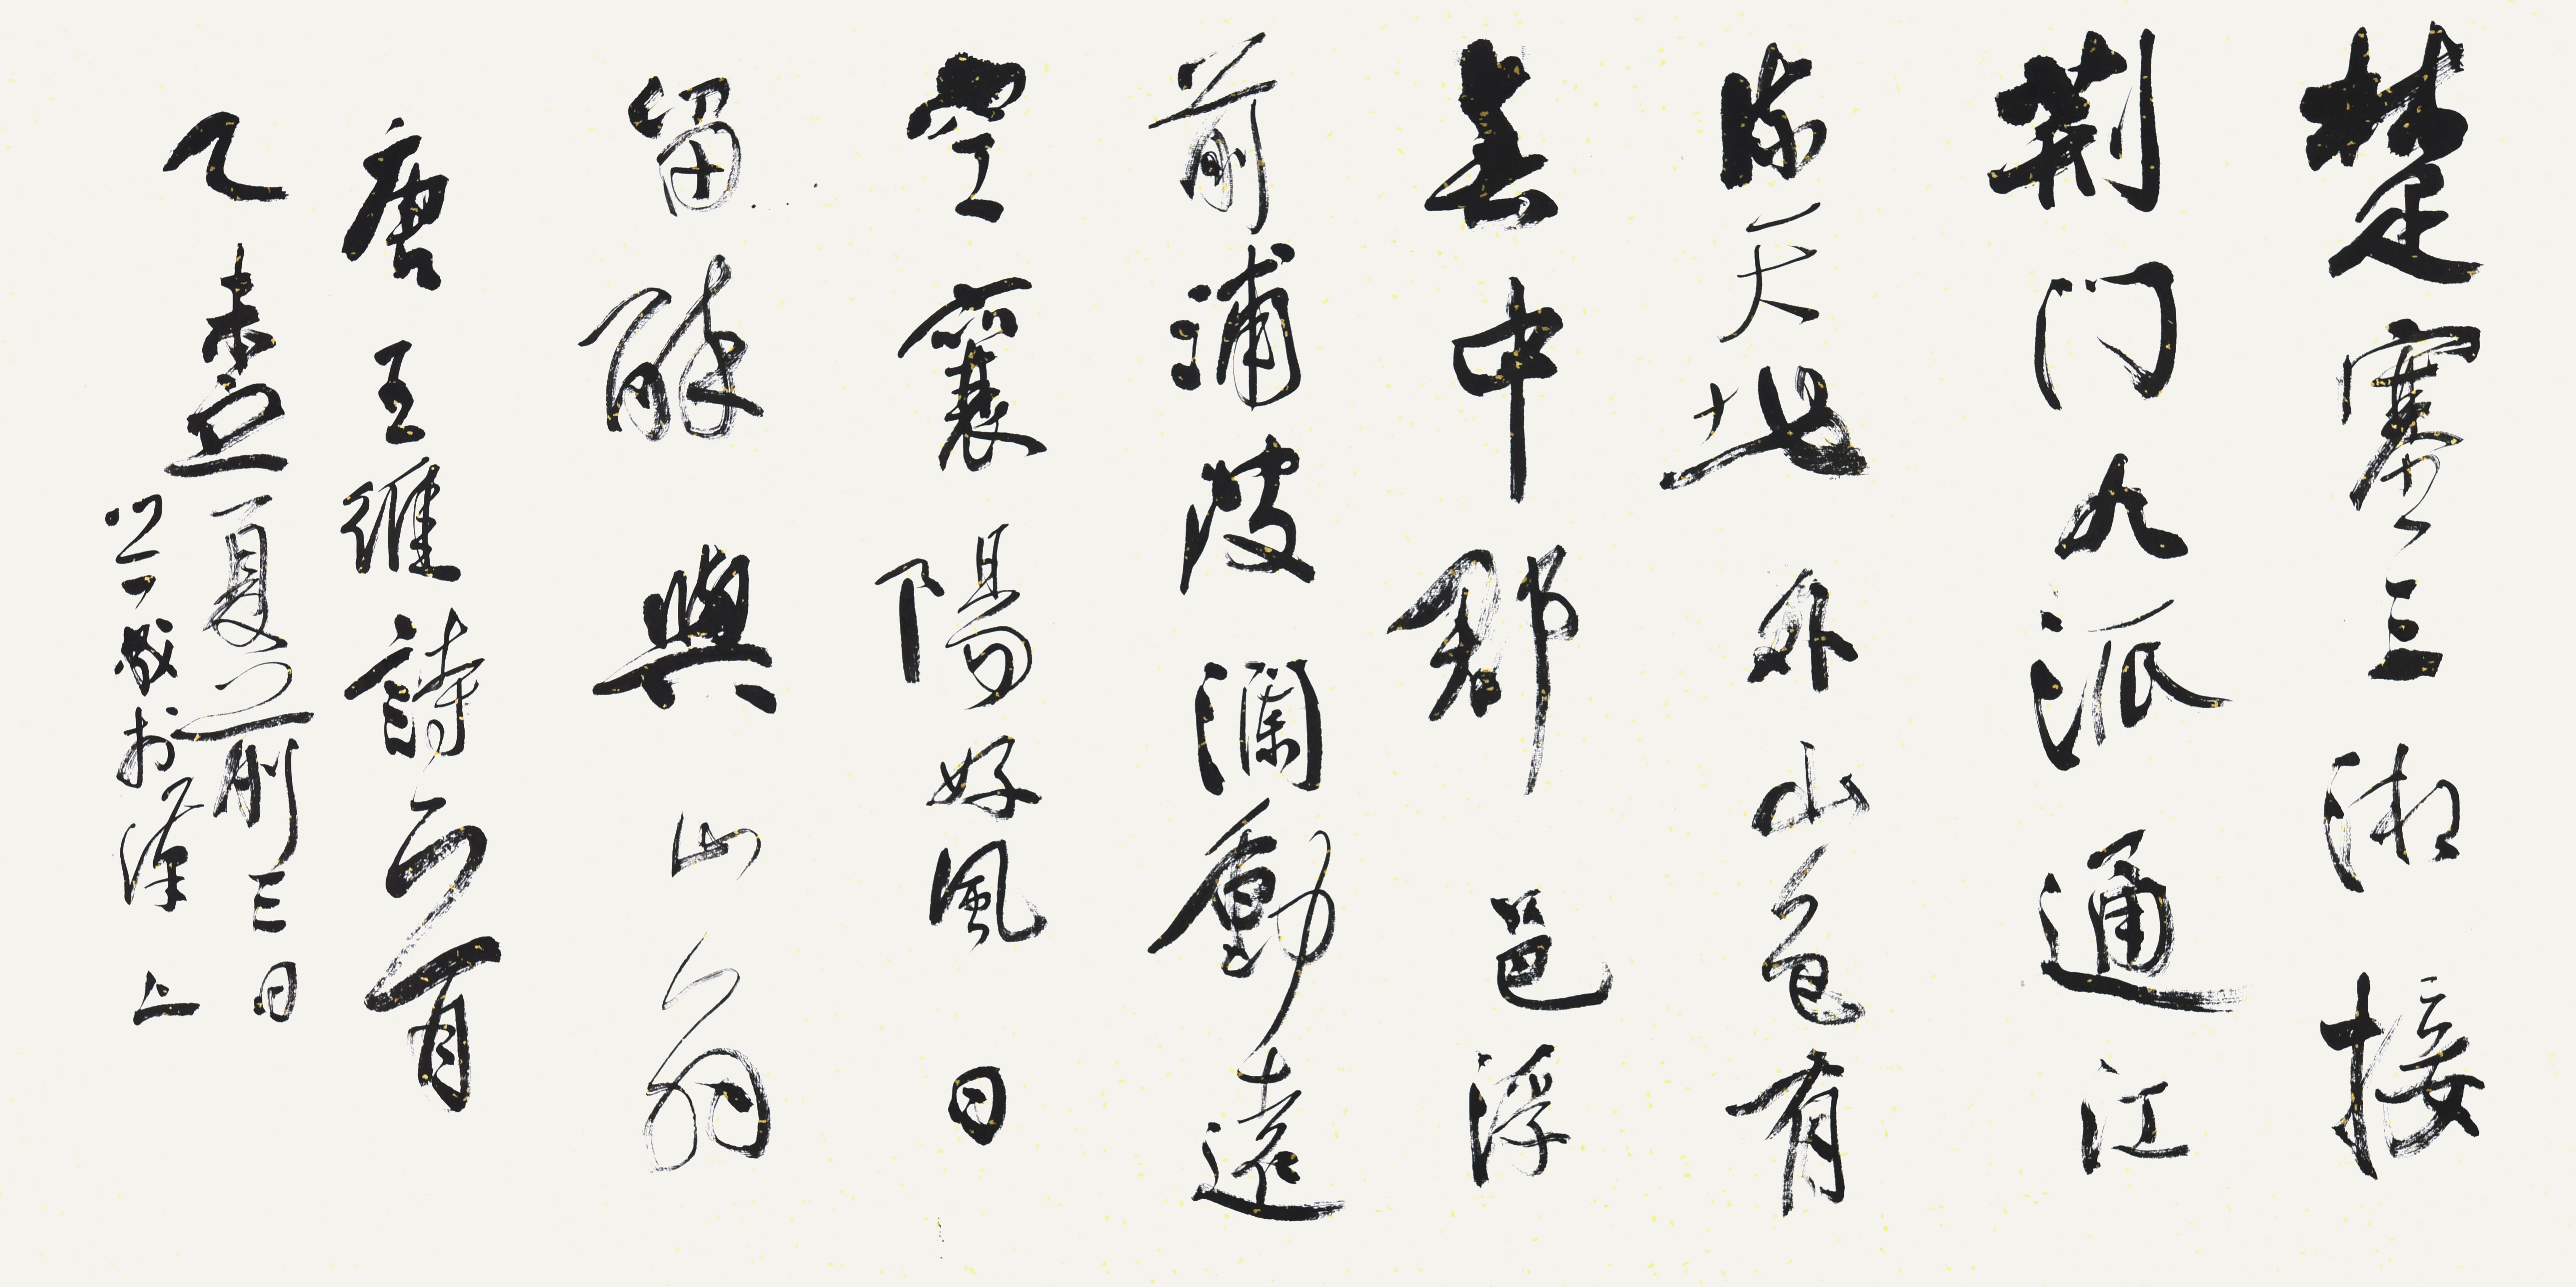 楚塞三湘接
荆门九派通江
流天地外山色有
無中郡邑浮
前浦波瀾動遠
空襄陽好風日
留醉與山翁
唐王維詩首
乙未立夏前三日
於漢上